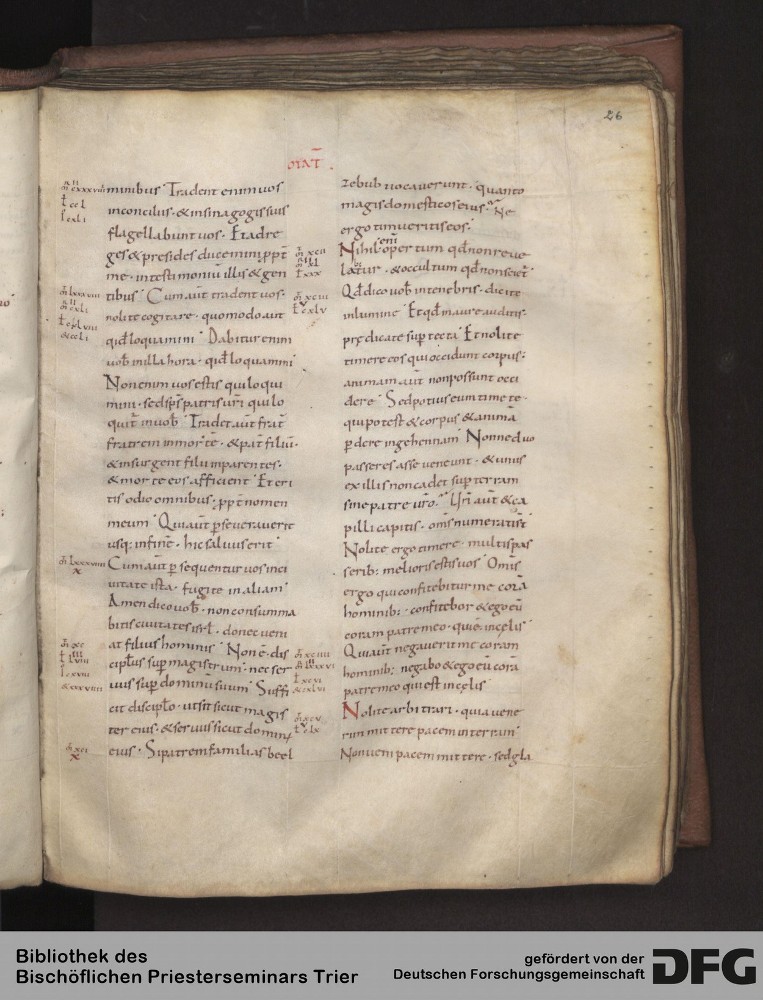 26
MAT
minibus Tradent enim uos
inconciliis · & insinagogis suis
flagellabunt uos · Et adre
ges & presides ducemini ppt̄
me · intestimoniū illis & gen
tibus Cum aūt tradent uos ·
nolite cogitare · quomodo aut
quid loquamini Dabitur enim
uob̄ inilla hora · quid loquamini
Non enim uos estis qui loqui
mini · sed sp̄s patris ur̄i qui lo
quit̄ in uob̄ Tradet aūt frat̄
fratrem inmorte · & pat̄ filiū ·
& insurgent filii inparentes ·
& morte eos afficient Et eri
tis odio omnibus · ppt̄ nomen
meum Qui aūt p̄seuerauerit
usq; infinē · hic saluus erit
Cum aūt p̄sequentur uos inci
uitate ista · fugite in aliam
Amen dico uob̄ · non consumma
bitis ciuitates isrl̄ · donec ueni
at filius hominis Non ē · dis
cipl̄us sup̄ magistrum · nec ser
uus sup̄ dominū suum Suffi
cit discipl̄o · ut sit sicut magis
ter eius · & seruus sicut dominus
eius · Si patremfamilias beel
zebub uocauerunt · quanto
magis domesticos eius · Ne
ergo timueritis eos ·
Nihil enī opertum qd̄ non reue
labitur · & occultum qd̄ non sciet̄
Qd̄ dico uob̄ intenebris · dicite
inlumine Et qd̄ inaure auditis ·
predicate sup̄ tecta Et nolite
timere eos qui occidunt corpus ·
animam aūt non possunt occi
dere Sed potius eum timete ·
qui potest & corpus & animā
p̄dere ingehennam Nonne duo
passeres asse ueneunt · & unus
ex illis non cadet sup̄ terram
sine patre ur̄o · Ur̄i aūt & ca
pilli capitis · om̄s numerati st̄
Nolite ergo timere · multis pas
serib; meliores estis uos Omis
ergo qui confitebitur me corā
hominib; · confitebor & ego eū
coram patre meo · qui ē incęlis
Qui aūt negauerit me coram
hominib; negabo & ego eū corā
patre meo qui est incęlis
Nolite arbitrari · quia uene
rim mittere pacem interram
Non ueni pacem mittere · sed gla
Bibliothek des
Bischöflichen Priesterseminars Trier
gefördert von der
Deutschen Forschungsgemeinschaft
DFG